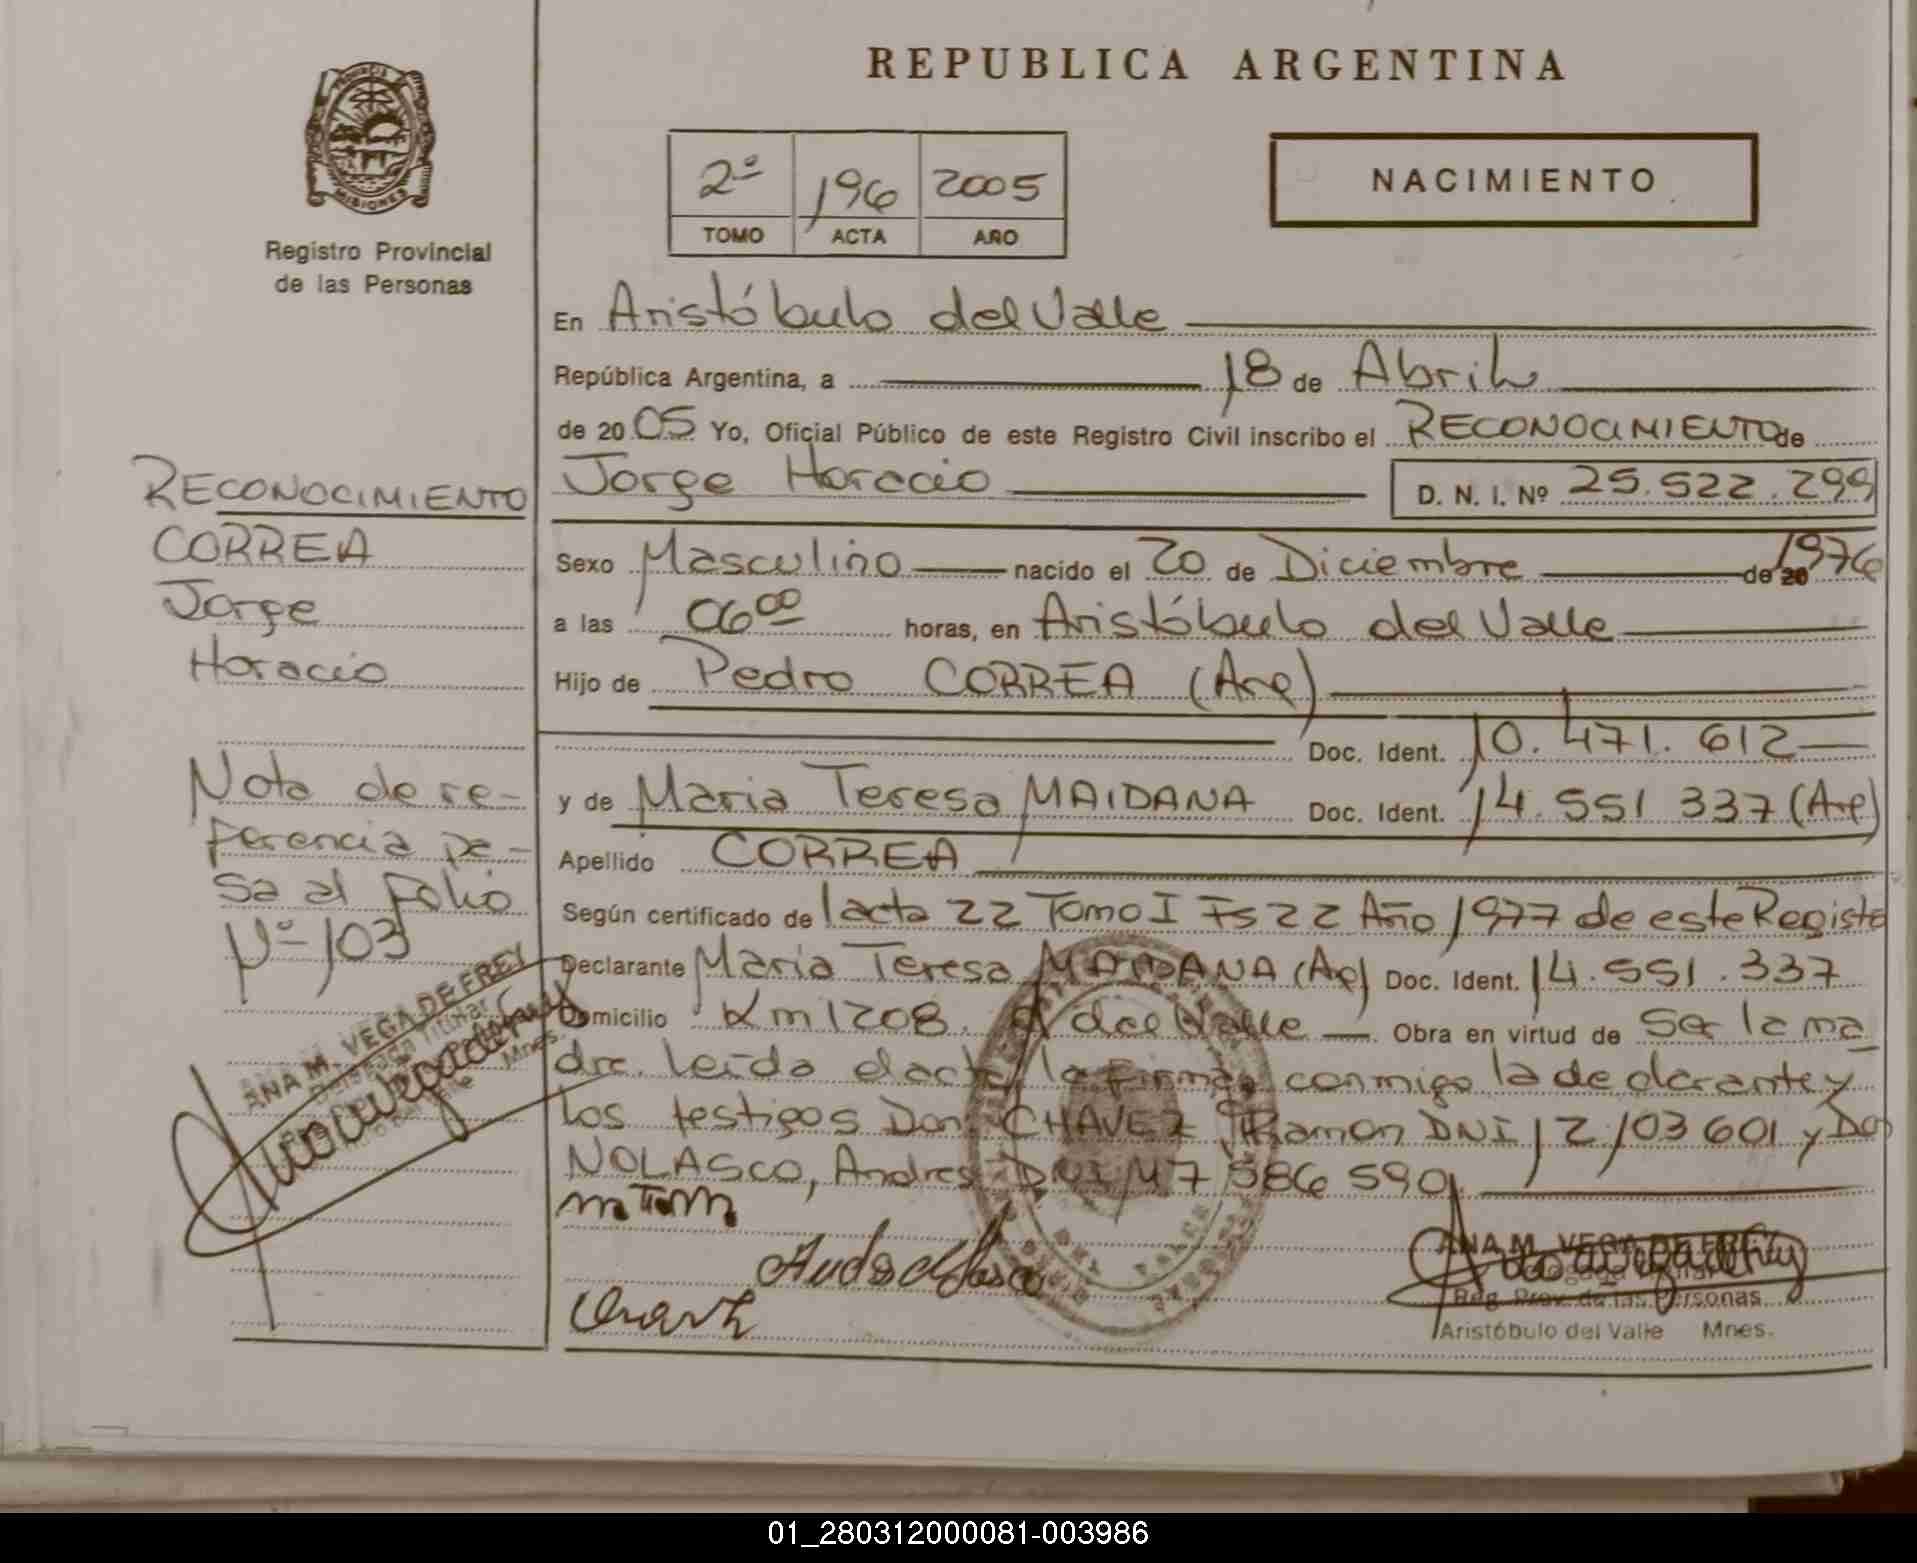 REPUBLICA ARGENTINA
PROVINCIA
MISIONES
Registro Provincial
de las Personas
2º 196 2005
TOMO ACTA AÑO
NACIMIENTO
En Aristóbulo del Valle
República Argentina, a 18 de Abril
de 2005 Yo, Oficial Público de este Registro Civil inscribo el RECONOCIMIENTO de
Jorge Horacio D. N. I. Nº 25.522.299
Sexo Masculino nacido el 20 de Diciembre de 20 1976
a las 06 00 horas, en Aristóbulo del Valle
Hijo de Pedro CORREA (Arg)
Doc. Ident. 10.471.612
y de Maria Teresa MAIDANA Doc. Ident. 14.551 337 (Arg)
Apellido CORREA
Según certificado de lacta 22 Tomo I Fs 22 Año 1977 de este Registo
Declarante Maria Teresa MAIDANA (Arg) Doc. Ident. 14.551.337
Domicilio Km 1208. A del Valle Obra en virtud de Ser la ma
dre. Leido el acta la firma conmigo la declarante y
los testigos Don CHAVEZ, Ramon DNI 12 103 601 y Don
NOLASCO, Andres DNI M 7 586 590.
m T m
RECONOCIMIENTO
CORREA
Jorge
Horacio
Nota de re-
ferencia pa-
sa al folio
Nº 103
ANA M. VEGA DE FREY
Delegada Titular
Mnes.
ANA M. VEGA DE FREY
Delegada Titular
Reg. Prov. de las Personas
Aristóbulo del Valle Mnes.
01_280312000081-003986